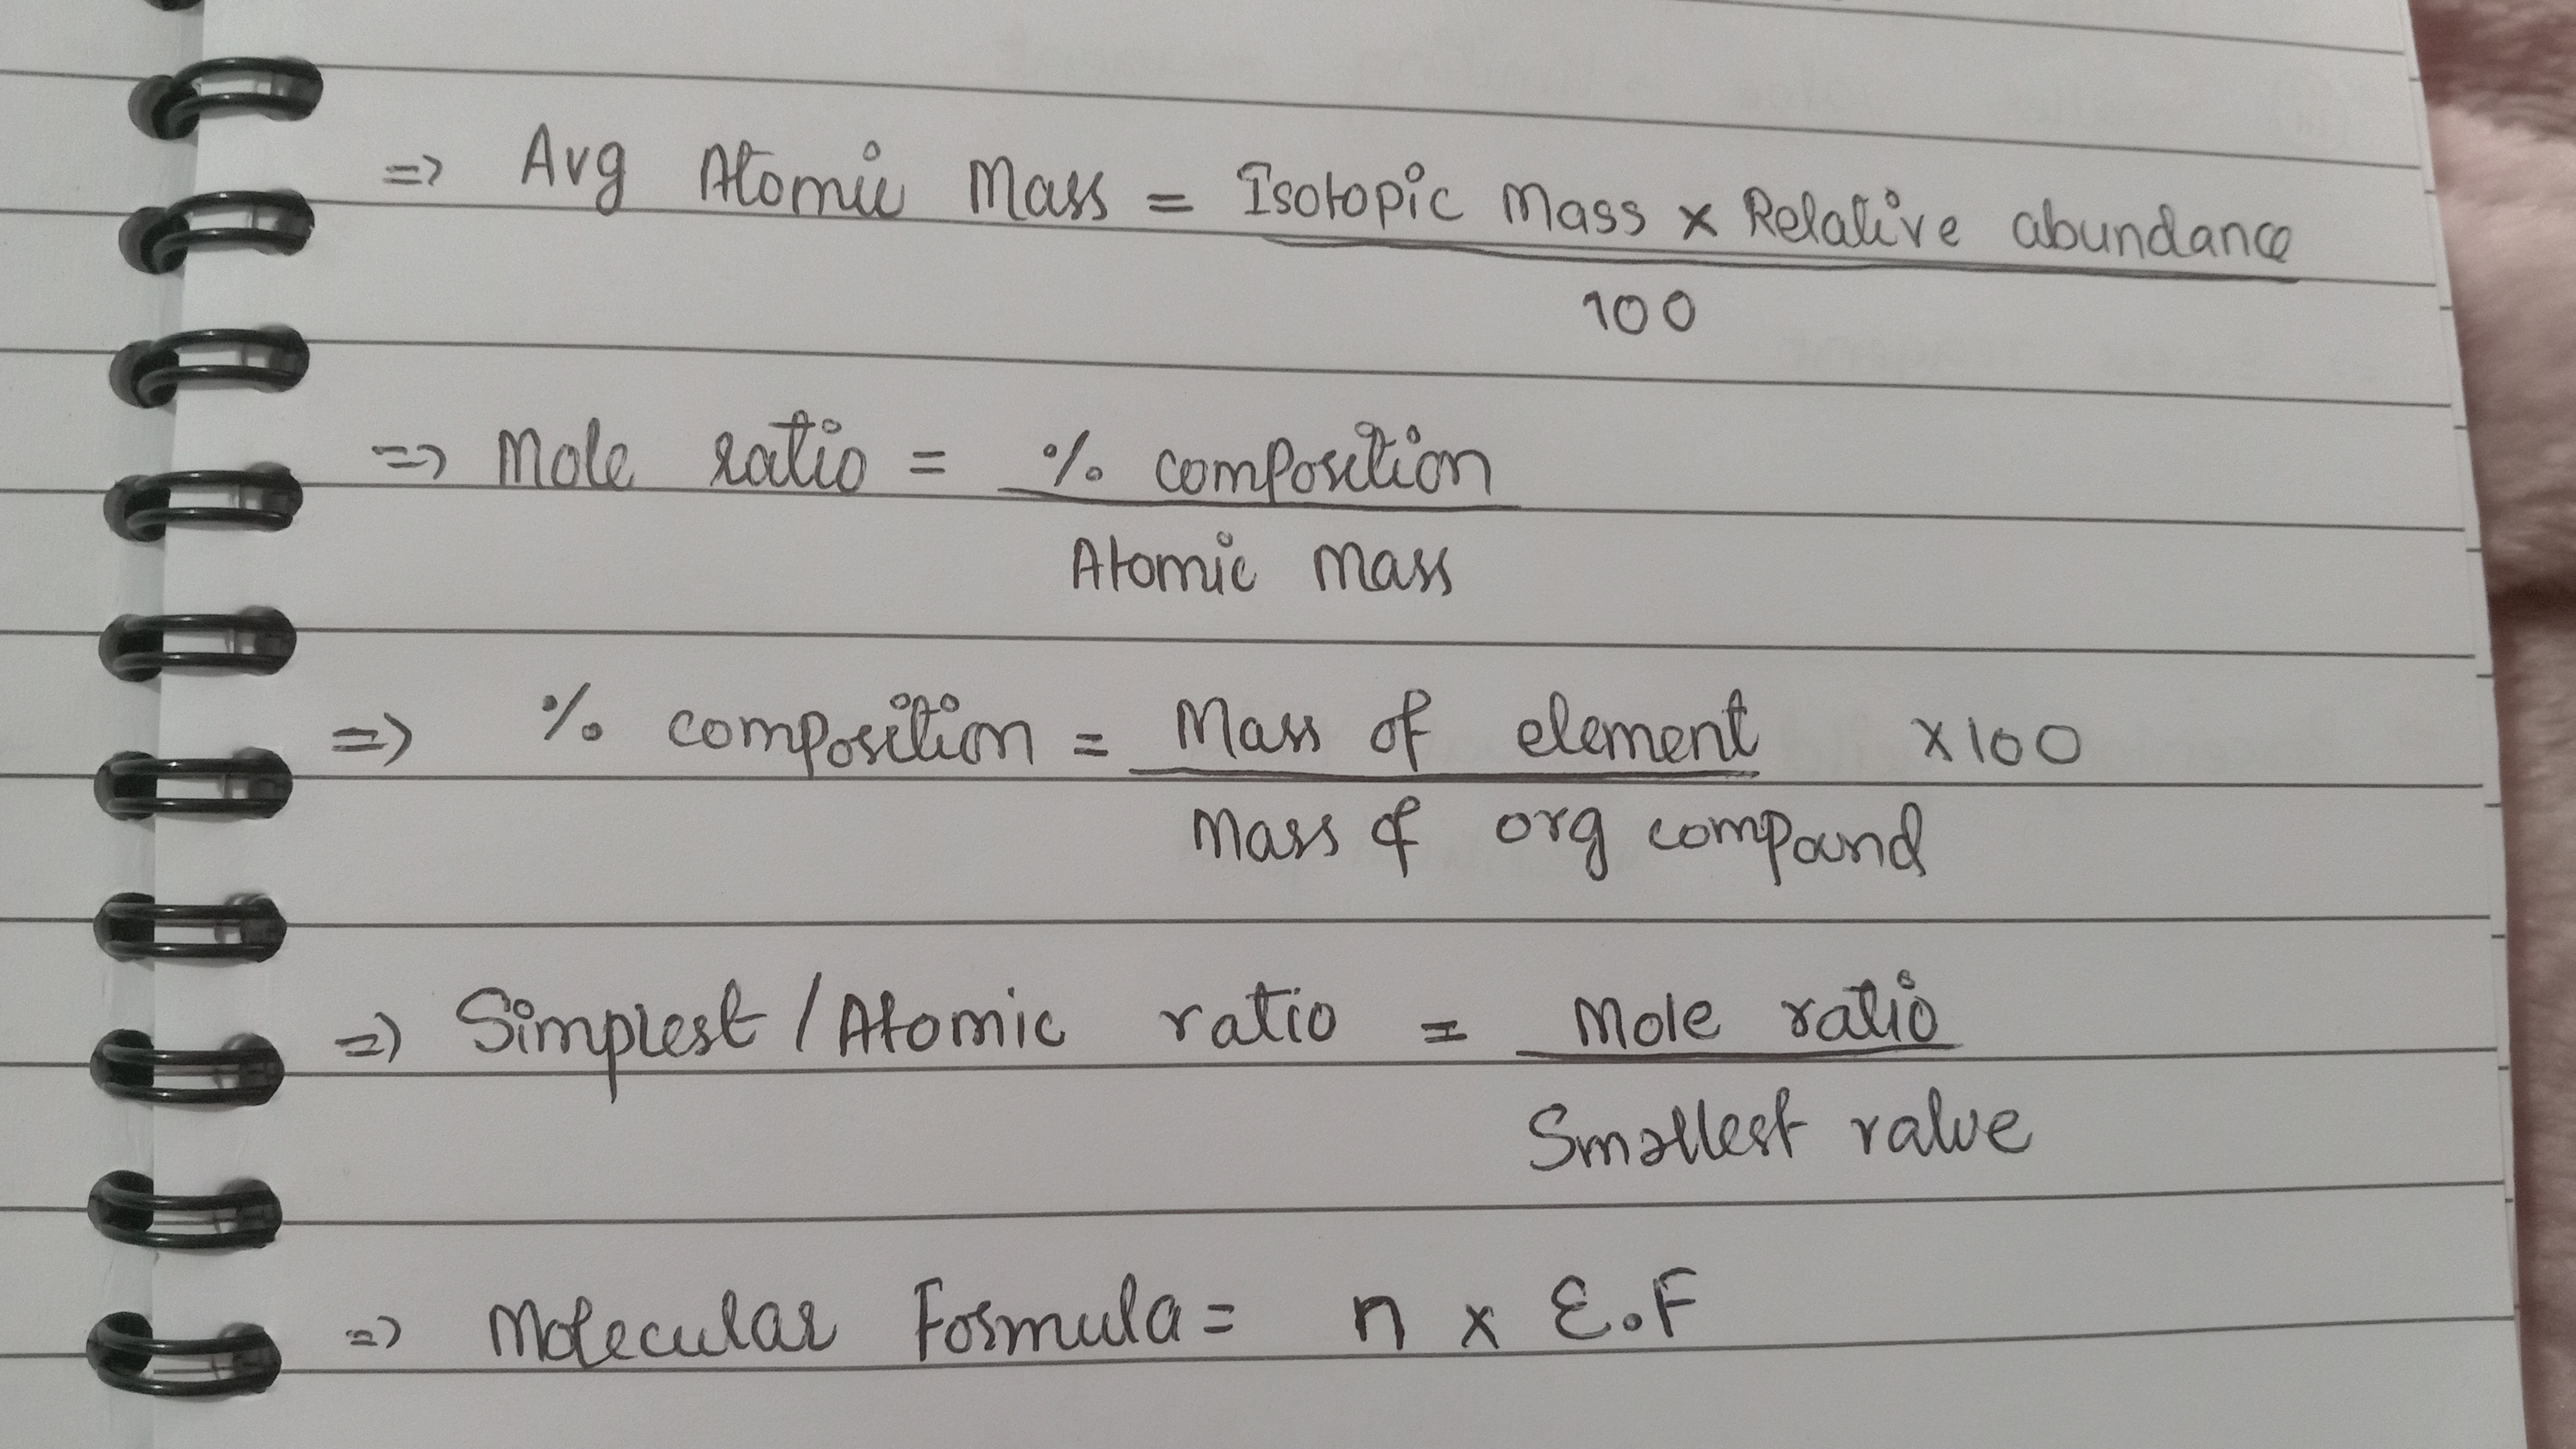 => Avg Atomic Mass = Isotopic Mass x Relative abundance
100
=> Mole ratio = % composition
Atomic Mass
=> % composition = Mass of element x100
Mass of org compound
=> Simplest / Atomic ratio = Mole ratio
Smallest value
=> Molecular Formula = n x E.F